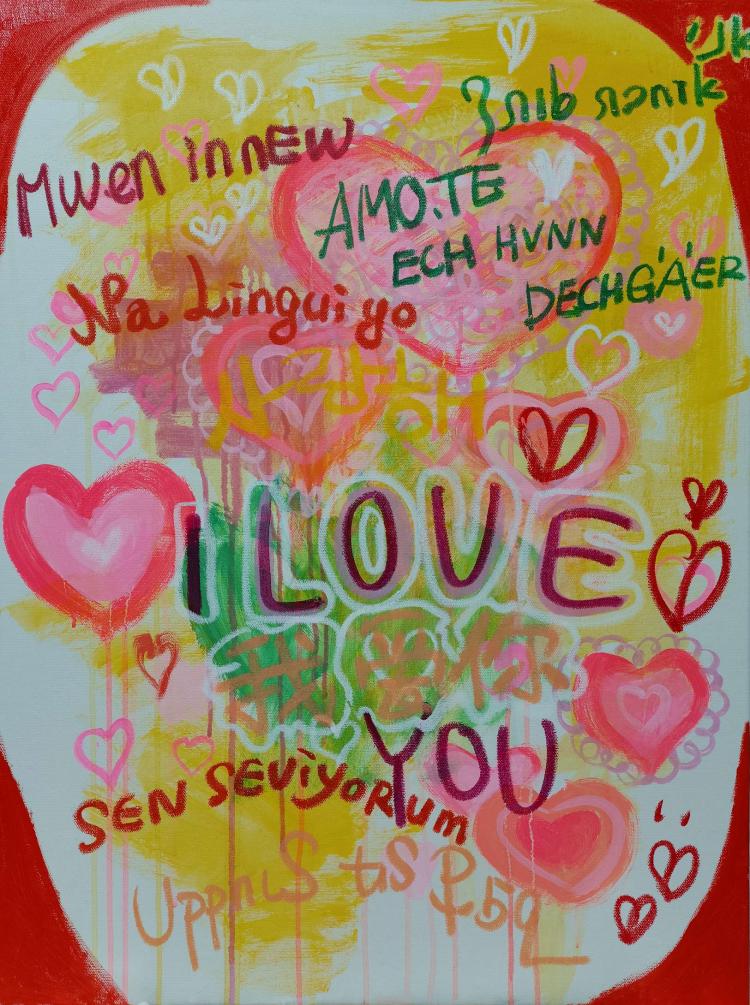 אני
Mwen innEW
AMO.TE
ECH HVNN
DECHGÄER
Na Linguiyo
사랑해
I LOVE
我爱你
YOU
SEN SEViYORum